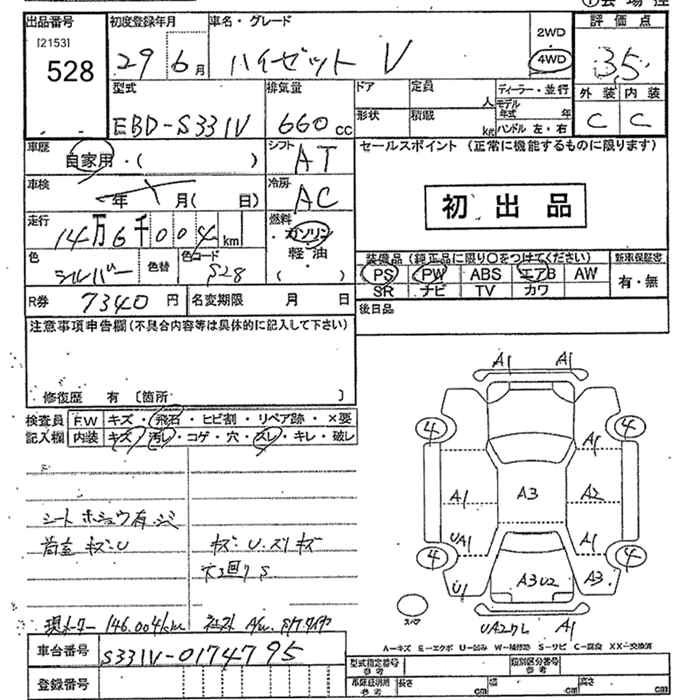 出品番号
[2153]
528
初度登録年月
29年6月
車名・グレード
ハイゼット V
2WD
4WD
評価点
3.5
外装 内装
C C
型式
EBD-S331V
排気量
660cc
ドア
定員
人
形状
積載
kg
ディーラー・並行
モデル年式 年
ハンドル 左・右
車歴
自家用・( )
シフト
AT
車検
年 月( 日)
冷房
AC
走行
14万6千004km
燃料
ガソリン
・軽油
( )
色
シルバー
色替
色コード
S28
R券 7340円
名変期限 月 日
セールスポイント (正常に機能するものに限ります)
初出品
装備品 (純正品に限り○をつけてください)
新車保証書
PS PW ABS エアB AW
SR ナビ TV カワ
有・無
後日品
注意事項申告欄(不具合内容等は具体的に記入して下さい)
修復歴 有 〔箇所 〕
検査員記入欄
F.W キズ・飛石・ヒビ割・リペア跡・×要
内装 キズ・汚レ・コゲ・穴・スレ・キレ・破レ
シート
キズU
キズ U.スリキズ
S
現メーター 146.004km
A1 A1
4 4
A1
A1 A3 A2
UA1 A1
4 4
U1 A3U2 A3
スペア
A1
A－キズ E－エクボ U－凹み W－補修跡 S－サビ C－腐食 XX－交換済
車台番号
S331V-0174795
登録番号
型式指定番号 参考
類別区分番号 参考
車庫証明用 参考
長さ cm
幅 cm
高さ cm